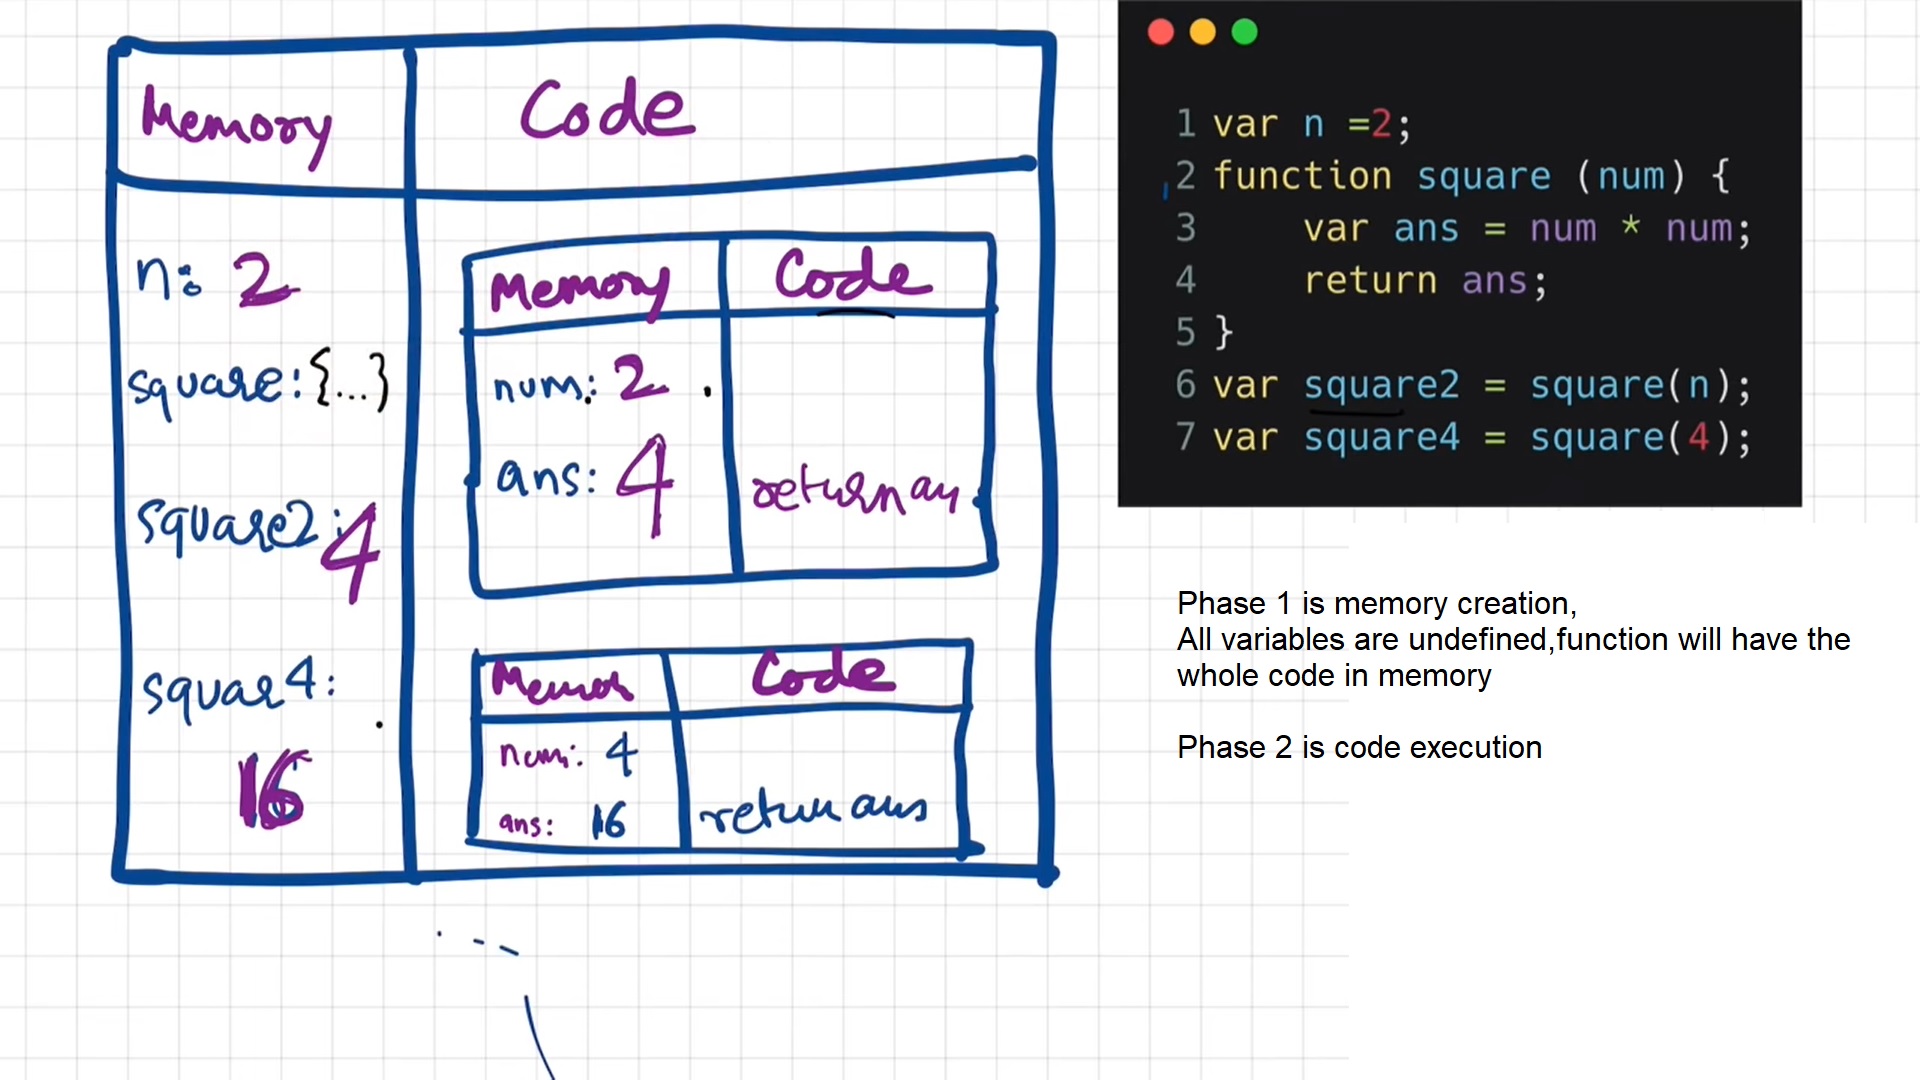 Memory Code
n: 2
square: {...}
square2: 4
squar4:
16
Memory Code
num: 2
ans: 4
return an
Memor Code
num: 4
ans: 16
return ans
1 var n =2;
2 function square (num) {
3 var ans = num * num;
4 return ans;
5 }
6 var square2 = square(n);
7 var square4 = square(4);
Phase 1 is memory creation,
All variables are undefined,function will have the
whole code in memory
Phase 2 is code execution